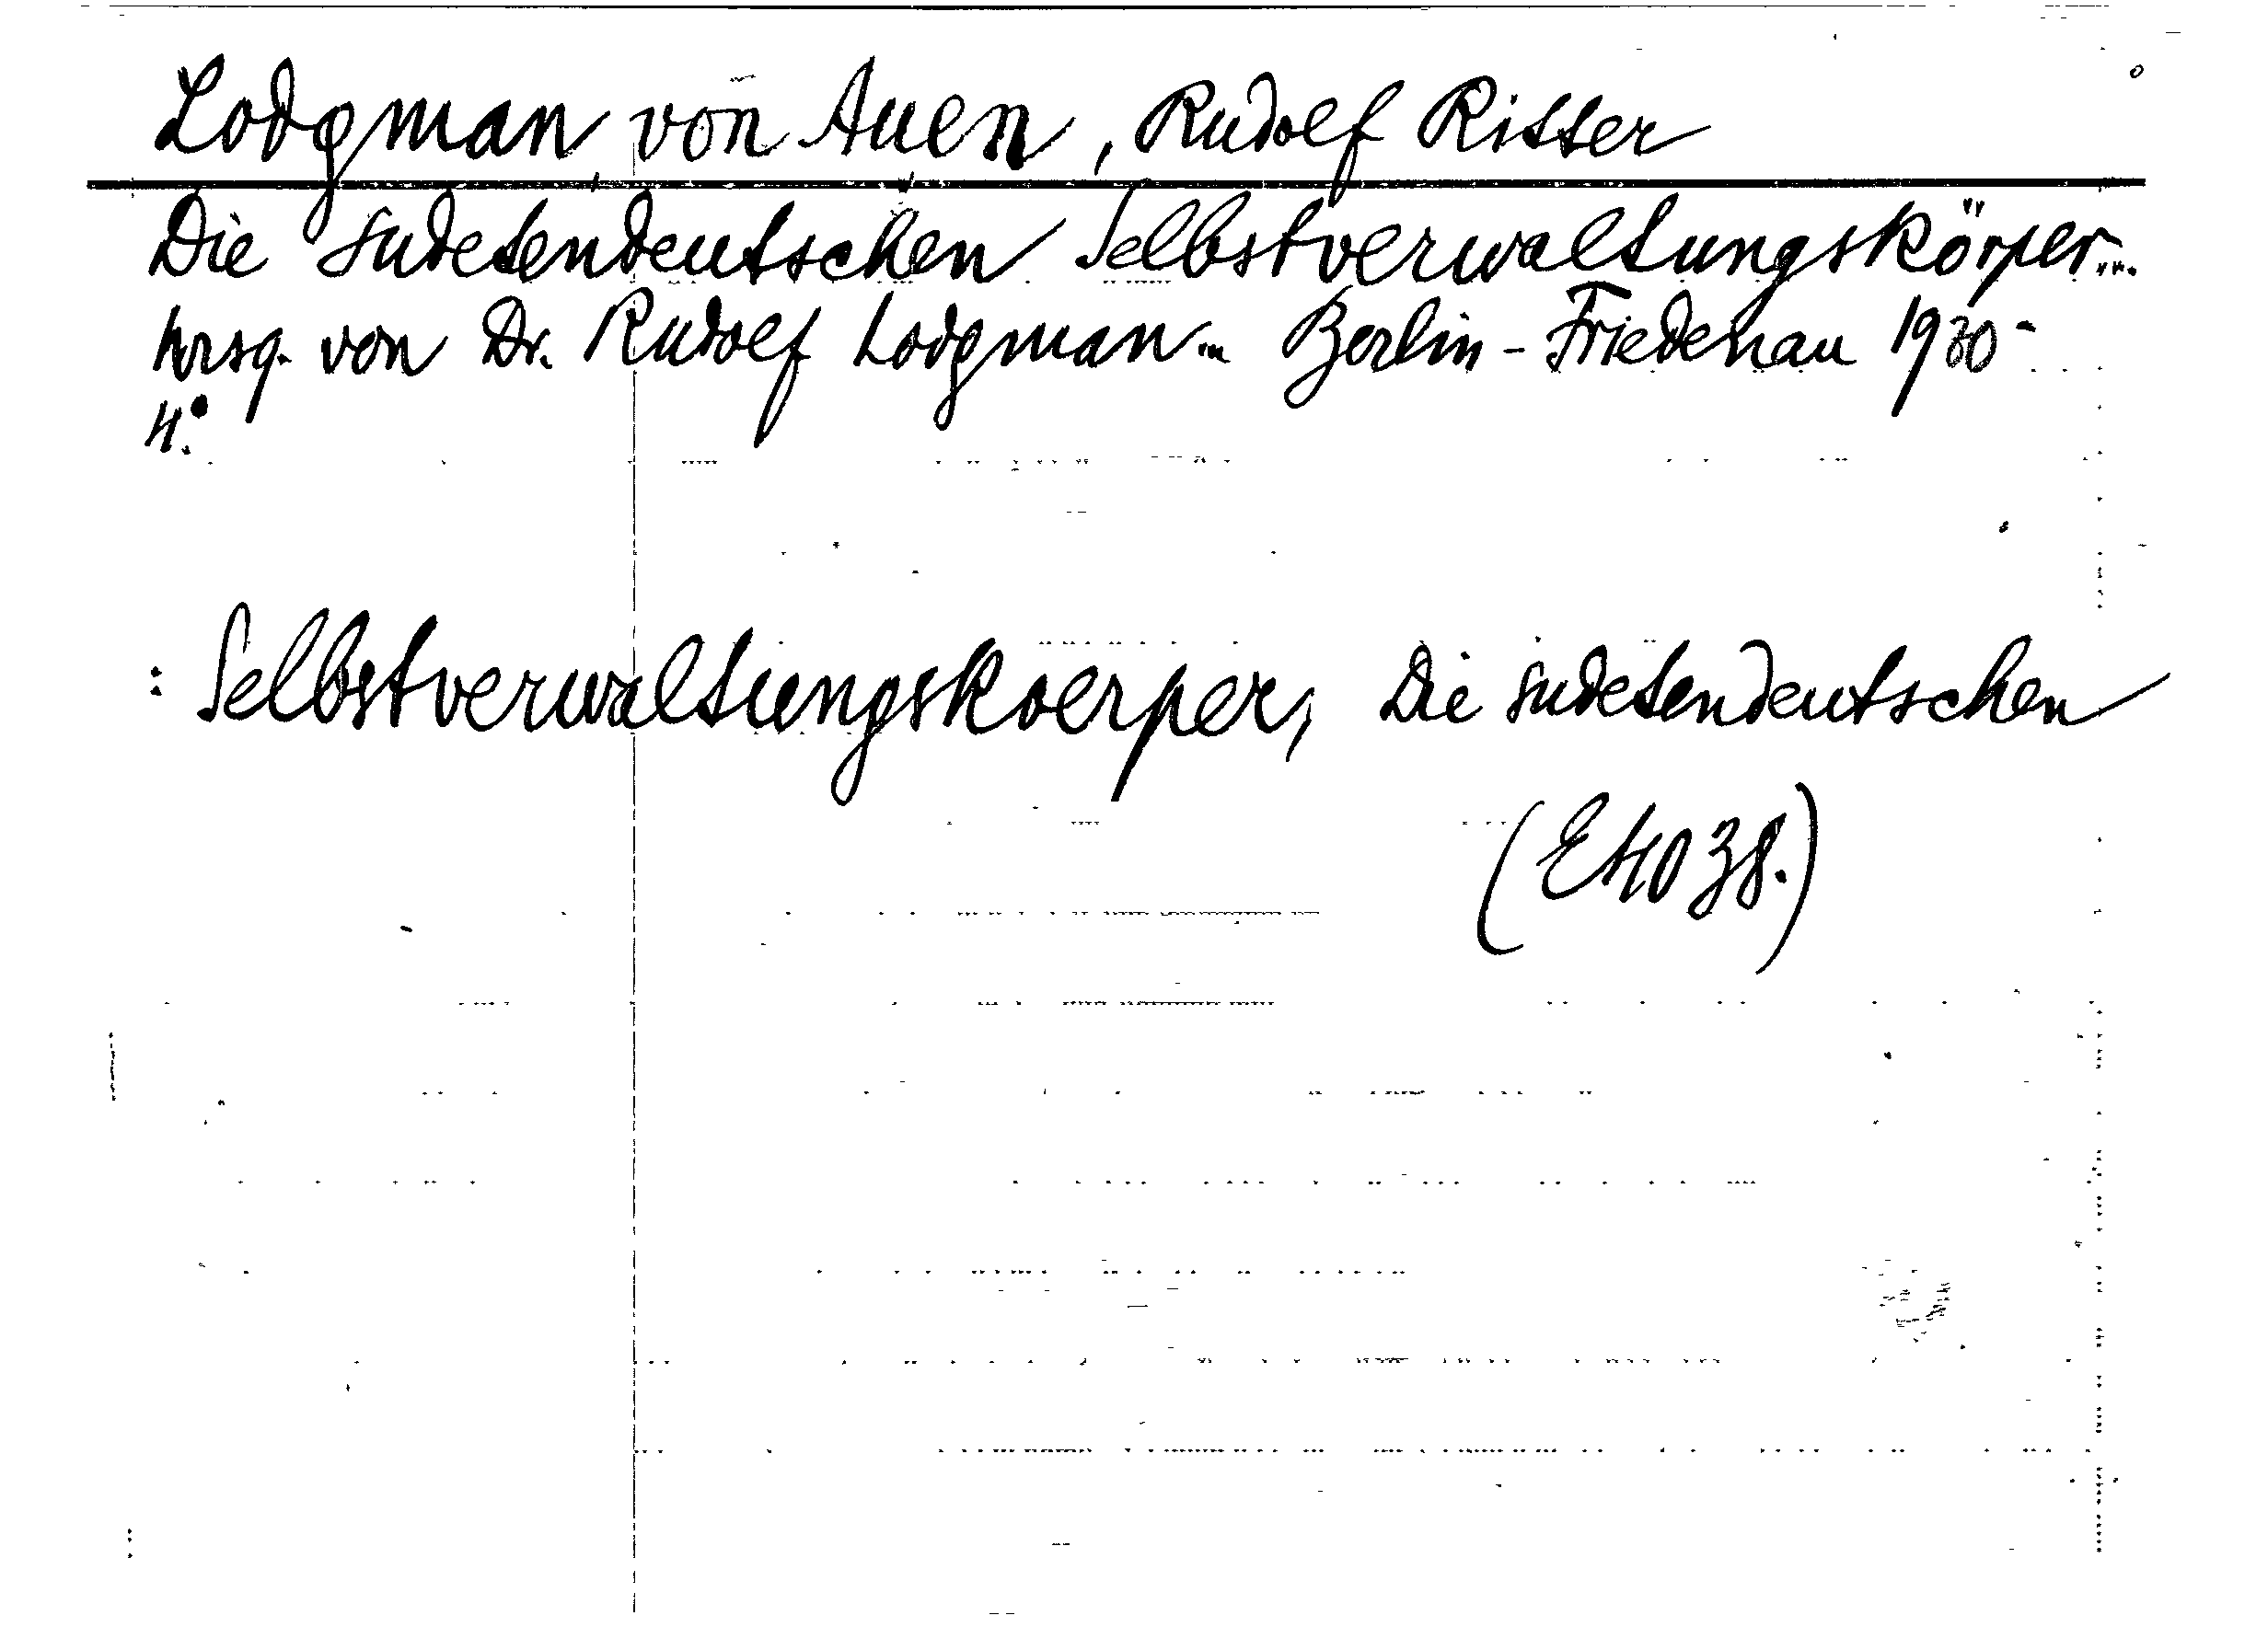 Lodgman von Auen, Rudolf Ritter
Die sudetendeutschen Selbstverwaltungskörper...
hrsg. von Dr. Rudolf Lodgman... Berlin-Friedenau 1930-
4°.
: Selbstverwaltungskoerper, Die sudetendeutschen
(E4038.)